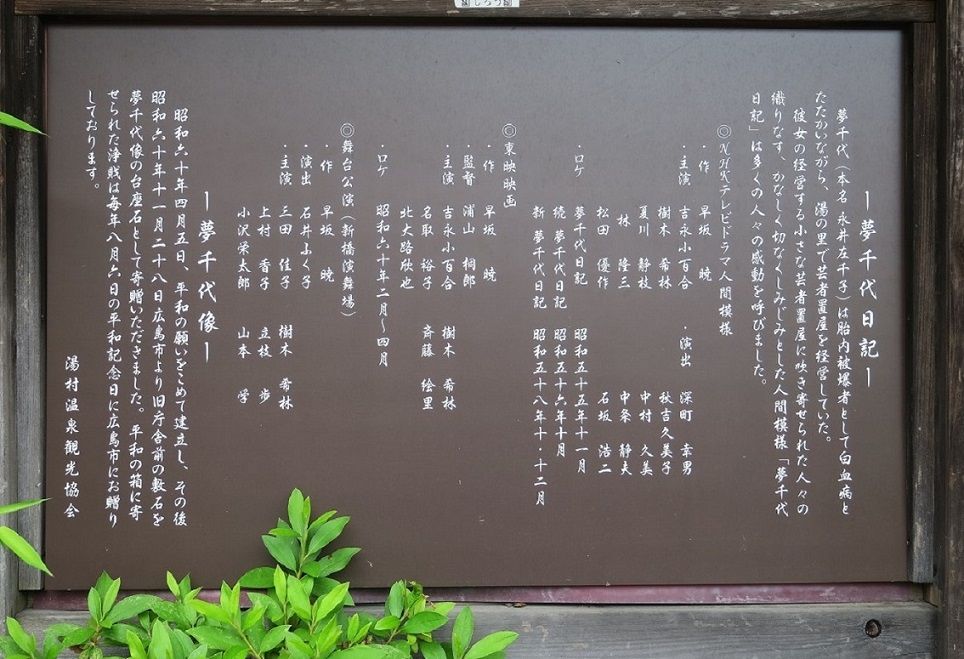 ー夢千代日記ー
夢千代（本名 永井左千子）は胎内被爆者として白血病と
たたかいながら、湯の里で芸者置屋を経営していた。
彼女の経営する小さな芸者置屋に吹き寄せられた人々の
織りなす、かなしく切なくしみじみとした人間模様「夢千代
日記」は多くの人々の感動を呼びました。
◎NHKテレビドラマ人間模様
・作 早坂 暁 ・演出 深町 幸男
・主演 吉永小百合 秋吉久美子
樹木 希林 中村 久美
夏川 静枝 中条 静夫
林 隆三 石坂 浩二
松田 優作
・ロケ 夢千代日記 昭和五十五年十一月
続 夢千代日記 昭和五十六年十月
新 夢千代日記 昭和五十八年十・十二月
◎東映映画
・作 早坂 暁
・監督 浦山 桐郎
・主演 吉永小百合 樹木 希林
名取 裕子 斉藤 絵里
北大路欣也
・ロケ 昭和六十年二月～四月
◎舞台公演（新橋演舞場）
・作 早坂 暁
・演出 石井ふく子
・主演 三田 佳子 樹木 希林
上村 香子 立枝 歩
小沢栄太郎 山本 学
ー夢千代像ー
昭和六十年四月五日、平和の願いをこめて建立し、その後
昭和六十年十一月二十八日広島市より旧庁舎前の敷石を
夢千代像の台座石として寄贈いただきました。平和の箱に寄
せられた浄財は毎年八月六日の平和記念日に広島市にお贈り
しております。
湯村温泉観光協会